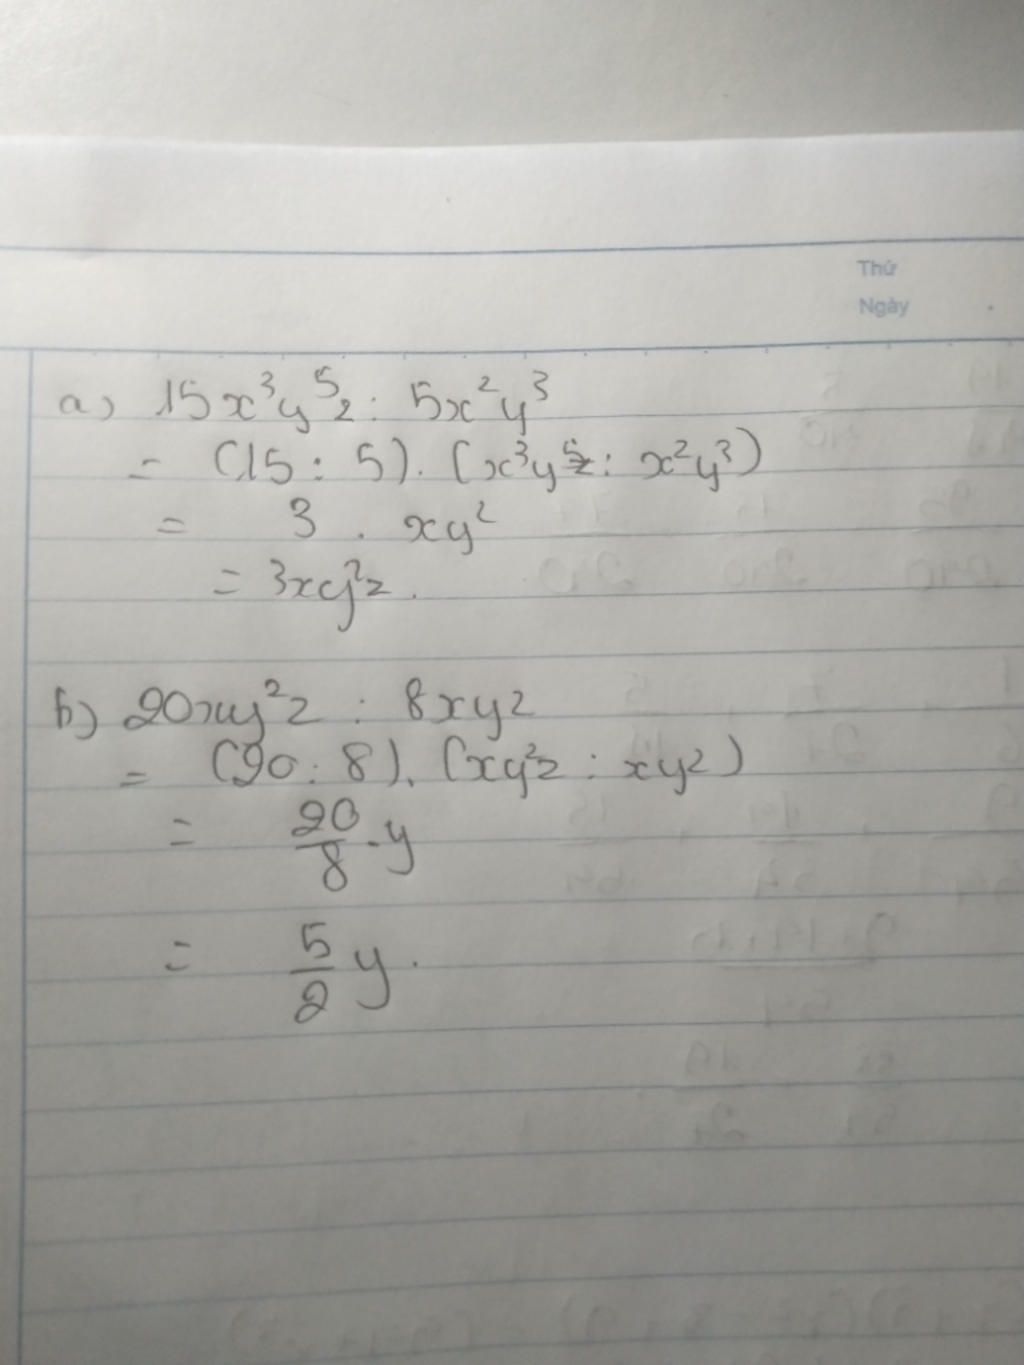 Thứ
Ngày
a) 15x³y⁵z : 5x²y³
= (15 : 5) . (x³y⁵z : x²y³)
= 3 . xy²
= 3xy²z.
b) 20xy²z : 8xyz
= (20 : 8). (xy²z : xyz)
= 20/8 . y
= 5/2 y.